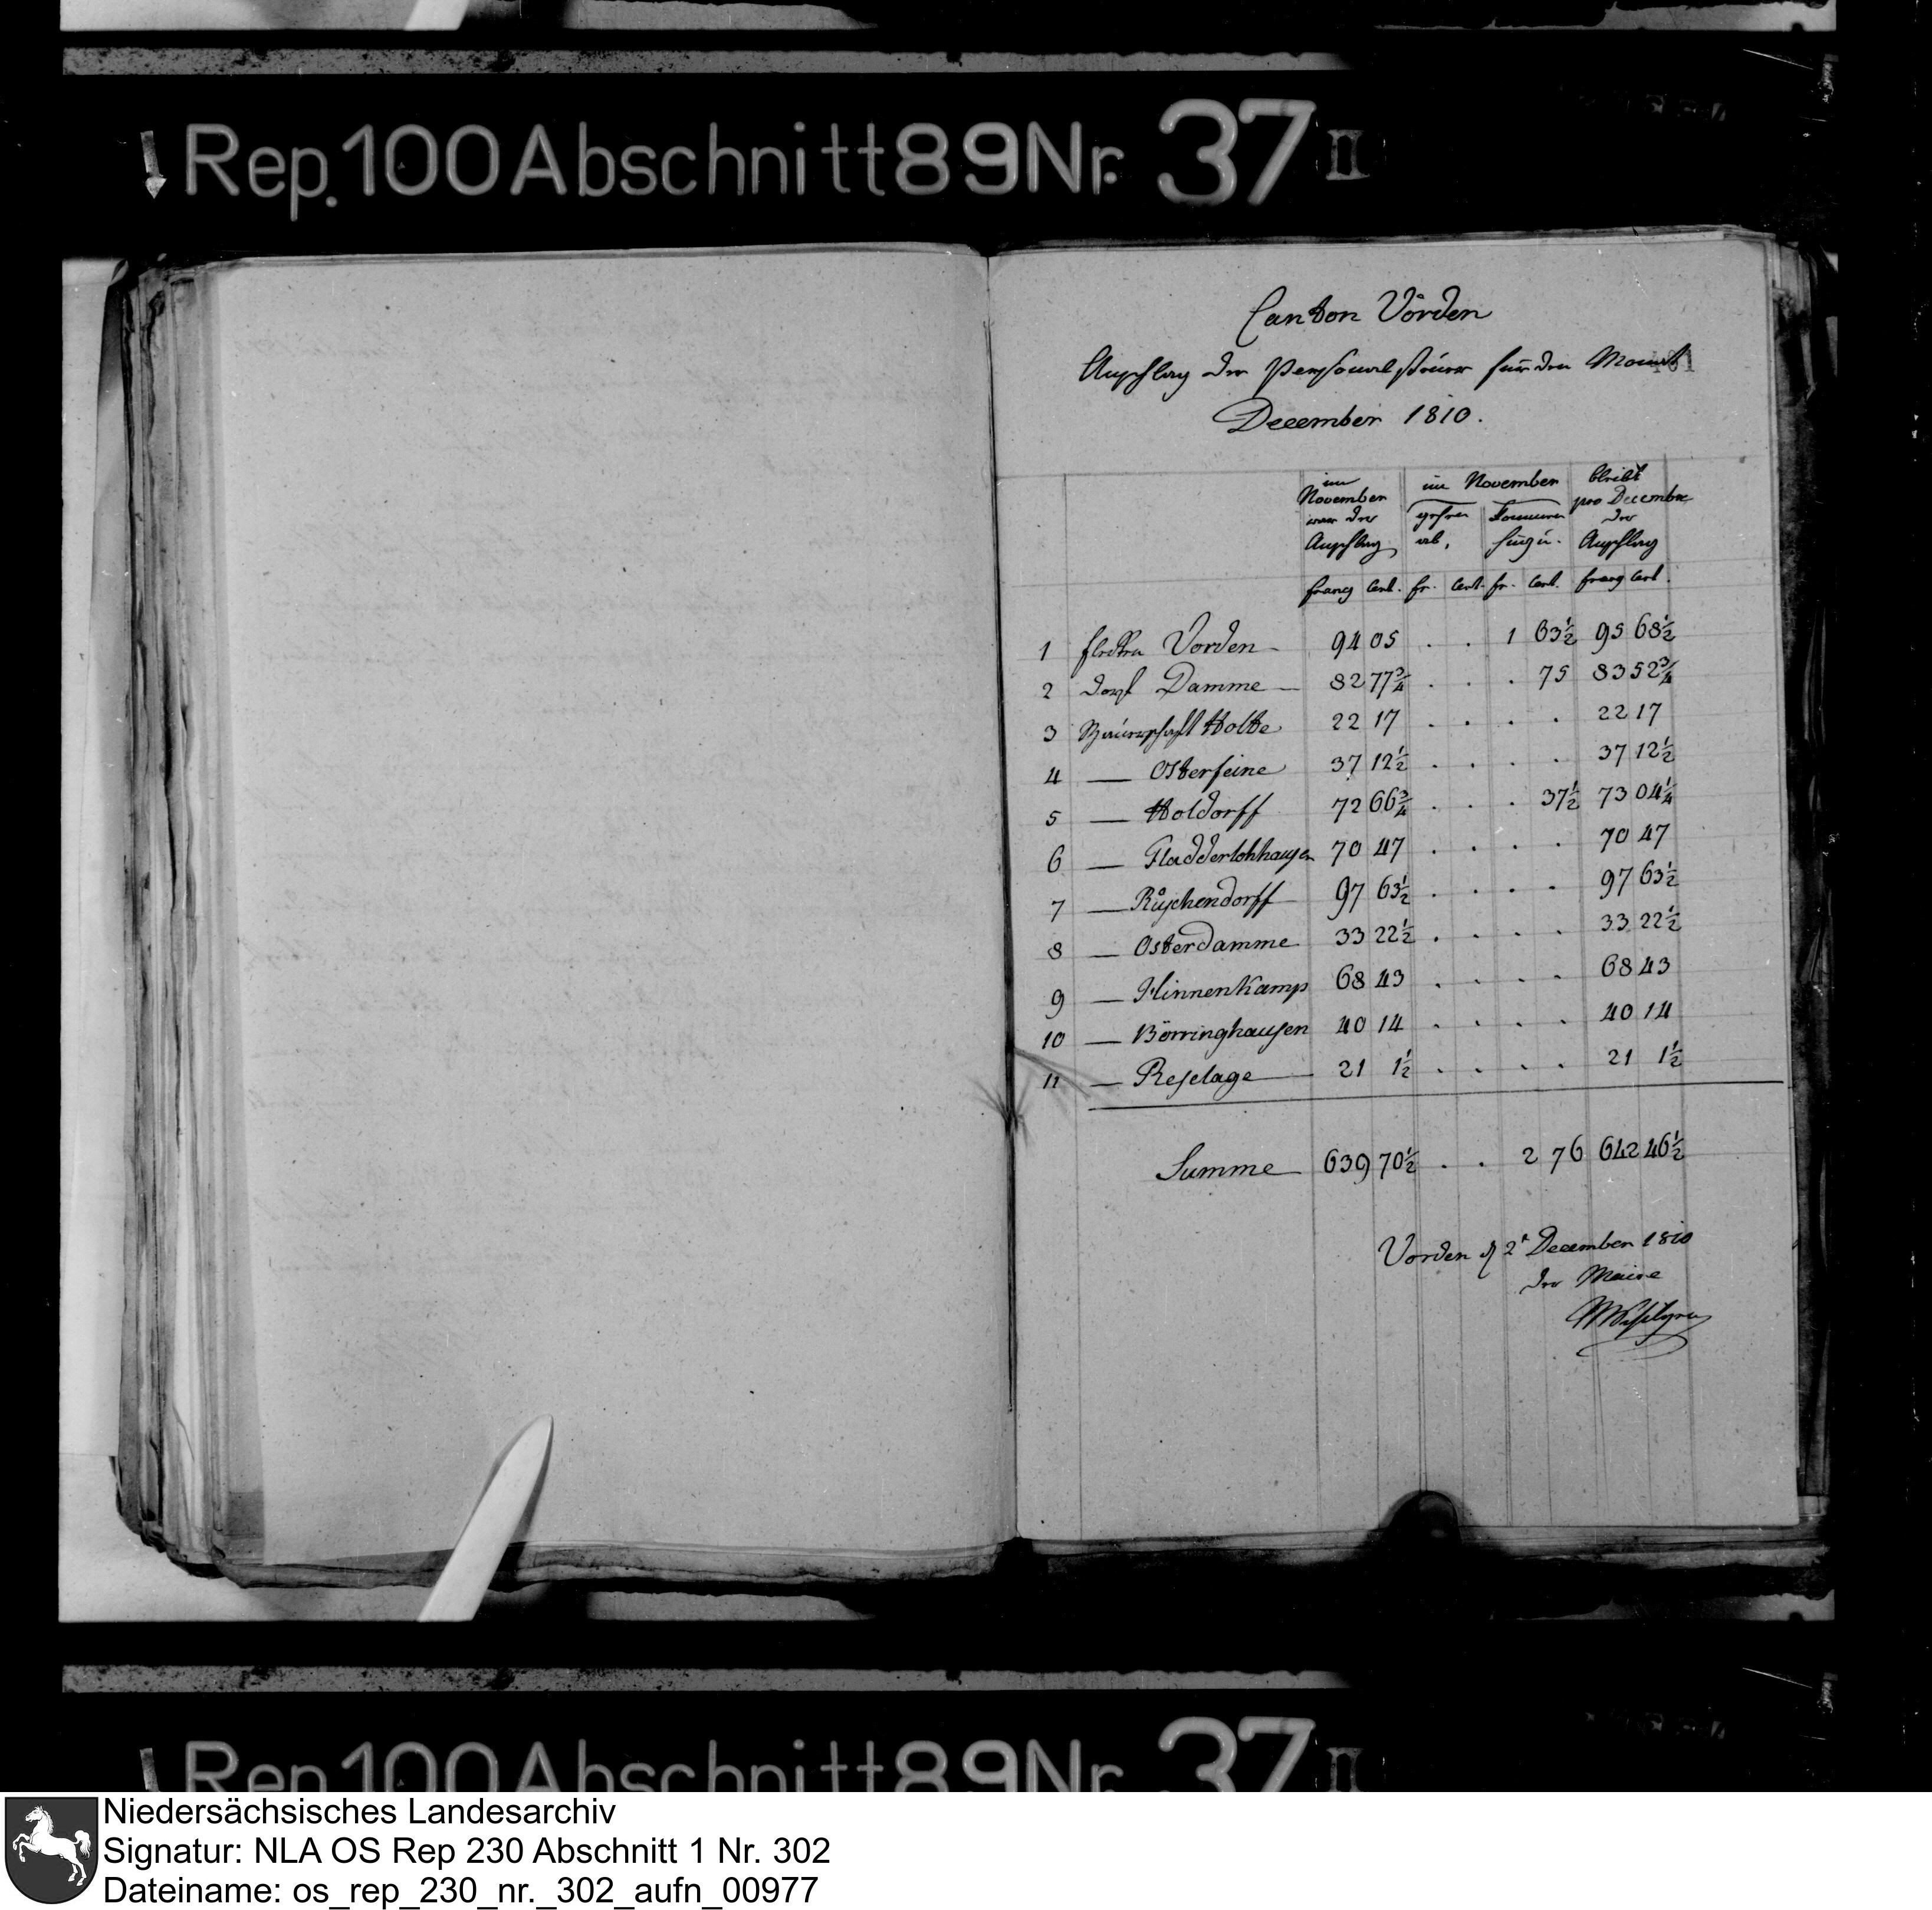 Rep. 100 Abschnitt 89 Nr. 37 II
Canton Vörden
Anschlag der Personalsteuer für den Monat
December 1810.
im November war der Anschlag | im November gehen ab, | kommen hinzu. | bleibt pro December der Anschlag
francs Cent. | fr. Cent. | fr. Cent. | francs Cent.
1 flecken Vörden 94 05 . . 1 63½ 95 68½
2 dorf Damme 82 77¾ . . . 75 83 52¾
3 Bauerschaft Holte 22 17 . . . . 22 17
4 — Osterfeine 37 12½ . . . . 37 12½
5 — Holdorff 72 66¾ . . . 37½ 73 04¼
6 — Fladderlohhausen 70 47 . . . . 70 47
7 — Rüschendorff 97 63½ . . . . 97 63½
8 — Osterdamme 33 22½ . . . . 33 22½
9 — Hinnenkamp 68 43 . . . . 68 43
10 — Börringhausen 40 14 . . . . 40 14
11 — Reselage 21 1½ . . . . 21 1½
Summe 639 70½ . . 2 76 642 46½
Vörden d 2t December 1810
der Maire
Rep. 100 Abschnitt 89 Nr. 37 II
Niedersächsisches Landesarchiv
Signatur: NLA OS Rep 230 Abschnitt 1 Nr. 302
Dateiname: os_rep_230_nr._302_aufn_00977